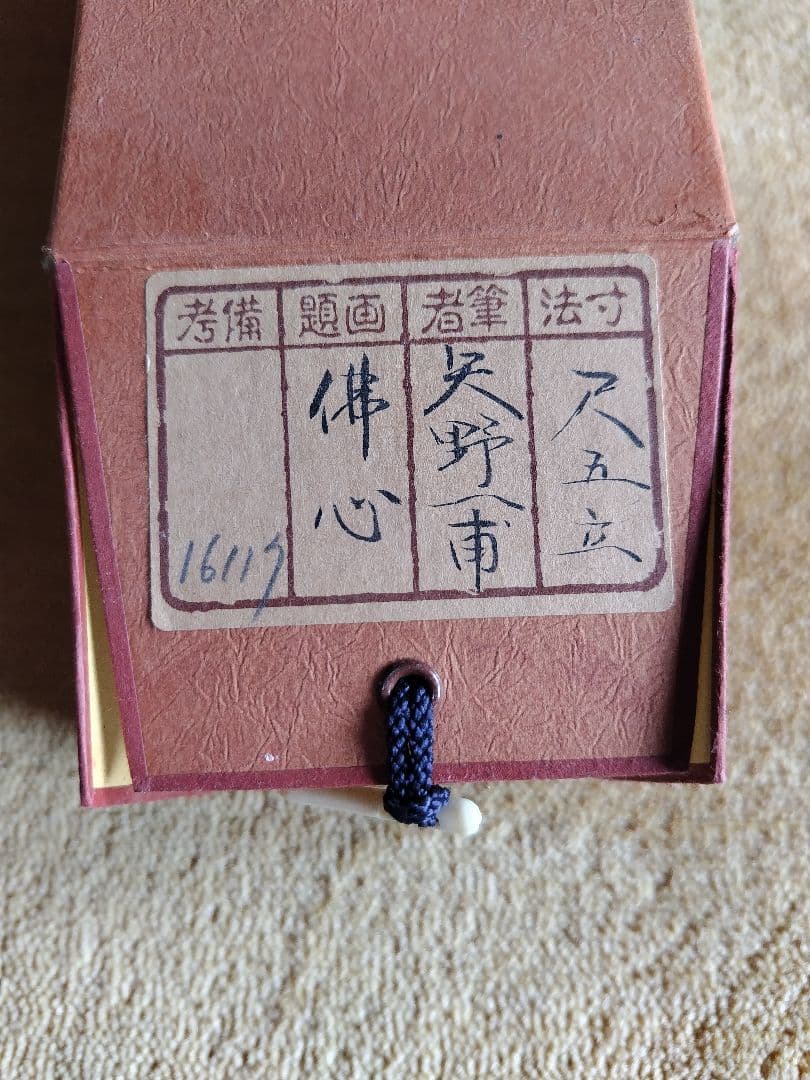 寸法
尺五立
筆者
矢野一甫
画題
佛心
備考
16119